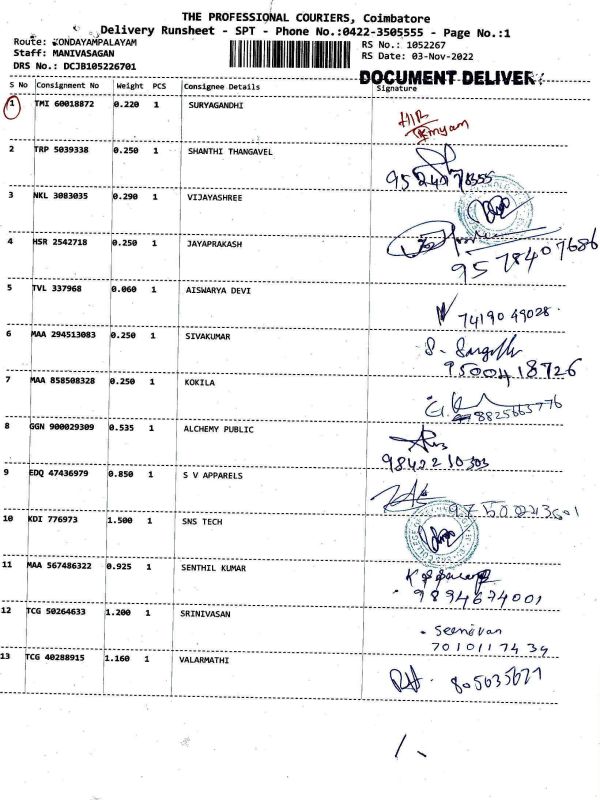 THE PROFESSIONAL COURIERS, Coimbatore
Delivery Runsheet - SPT - Phone No.:0422-3505555 - Page No.:1
Route: KONDAYAMPALAYAM
RS No.: 1052267
Staff: MANIVASAGAN
RS Date: 03-Nov-2022
DRS No.: DCJB105226701
DOCUMENT DELIVERY
S No Consignment No Weight PCS Consignee Details Signature
1 TMI 60018872 0.220 1 SURYAGANDHI
2 TRP 5039338 0.250 1 SHANTHI THANGAVEL
3 NKL 3083035 0.290 1 VIJAYASHREE
4 HSR 2542718 0.250 1 JAYAPRAKASH
9578407686
5 TVL 337968 0.060 1 AISWARYA DEVI
7419049028
6 MAA 294513083 0.250 1 SIVAKUMAR
9500418726
7 MAA 858508328 0.250 1 KOKILA
8825665776
8 GGN 900029309 0.535 1 ALCHEMY PUBLIC
9842210303
9 EDQ 47436979 0.850 1 S V APPARELS
10 KDI 776973 1.500 1 SNS TECH
11 MAA 567486322 0.925 1 SENTHIL KUMAR
9894674001
12 TCG 50264633 1.200 1 SRINIVASAN
Seenivan
7010117434
13 TCG 40288915 1.160 1 VALARMATHI